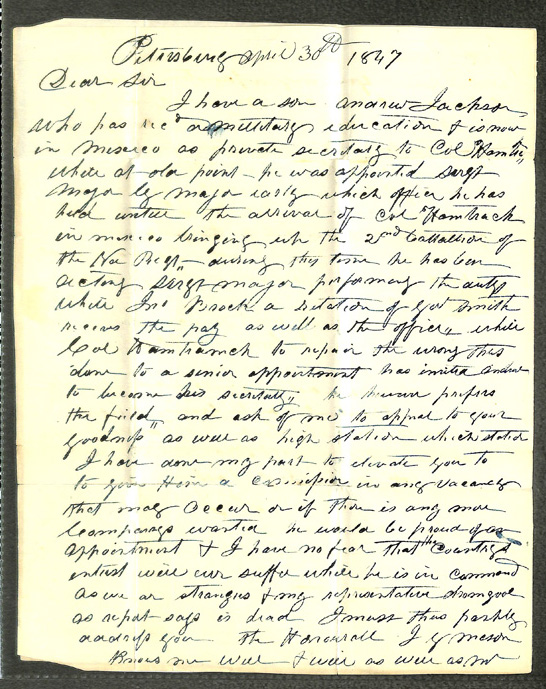 Petersburg april 30th 1847
Dear Sir
I have a son Andrew Jackson
who has recd a millitary education & is now
in mexico as private secretary to Col Hamtr
while at old point he was appointed sergt
major by major early which office he has
held untill the arrival of Col Hamtrack
in mexico bringing up the 2nd battallion of
the Va Regt during this time he has been
acting sergt major performing the duty
while Jno Brock a relation of Gov Smith
receives the pay as well as the office while
Col Hamtramck to repair the wrong thus
done to a senior appointment has invited andrew
to become his secretary he however prefers
the field and ask of me to appeal to your
goodness as well as high station which station
I have done my part to elevate you to
to give Him a Commission in any vacancy
that may occur or if there is any more
Companys wanted he would be proud of an
appointment & I have no fear that the Countrys
interest will ever suffer while he is in command
as we ar strangers & my representative dromgoole
as report says is dead I must thus
address you the Honourable J y mason
Knows me well & will as well as